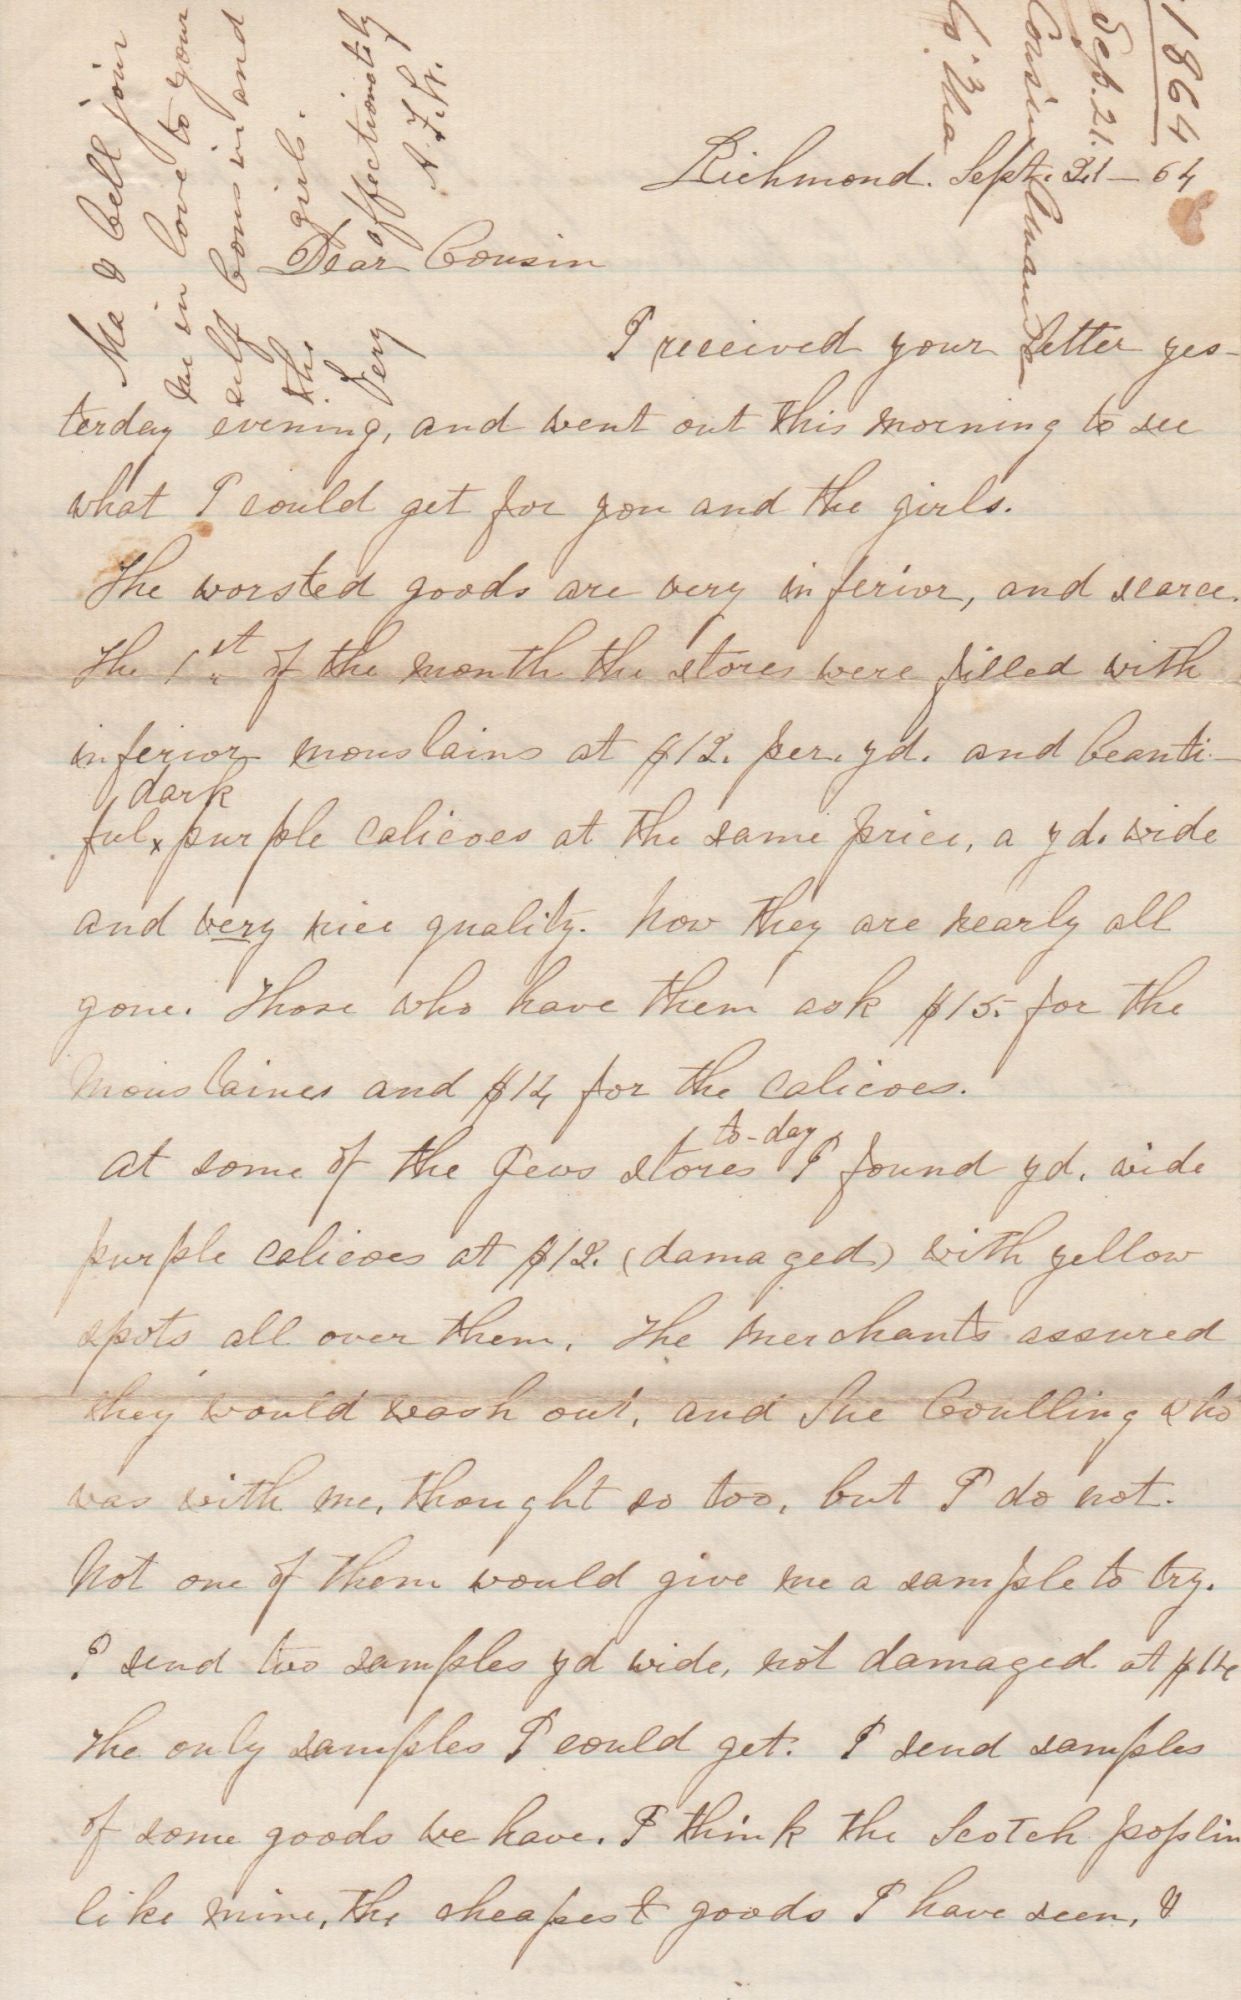 1864
Sept. 21.
Cousin Amanda
Co. Ma
Richmond. Sept. 21 - 64
Dear Cousin
I received your letter yes-
terday evening, and went out this morning to see
what I could get for you and the girls.
The worsted goods are very inferior, and scarce.
The 1st of the month the stores were filled with
inferior mouslains at $12. per. yd. and beauti-
dark
ful x purple calicoes at the same price, a yd. wide
and very nice quality. Now they are nearly all
gone. Those who have them ask $15- for the
Mouslaines and $14 for the calicoes.
to-day
At some of the Jews stores I found yd. wide
purple calicoes at $12. (damaged) with yellow
spots all over them. The merchants assured
they would wash out, and Sue Coulling who
was with me, thought so too, but I do not.
Not one of them would give me a sample to try.
I send two samples yd wide, not damaged at $14
The only samples I could get. I send samples
of some goods we have. I think the Scotch poplin
like mine, the cheapest goods I have seen, &
Ma & bell join
me in love to your
self Cousin and
the girls.
Very affectionately
A. F. W.